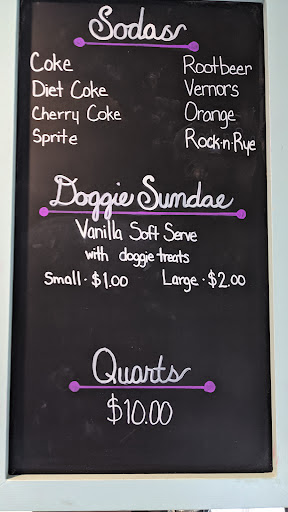 Sodas
Coke Rootbeer
Diet Coke Vernors
Cherry Coke Orange
Sprite Rock·n·Rye
Doggie Sundae
Vanilla Soft Serve
with doggie treats
Small · $1.00 Large · $2.00
Quarts
$10.00